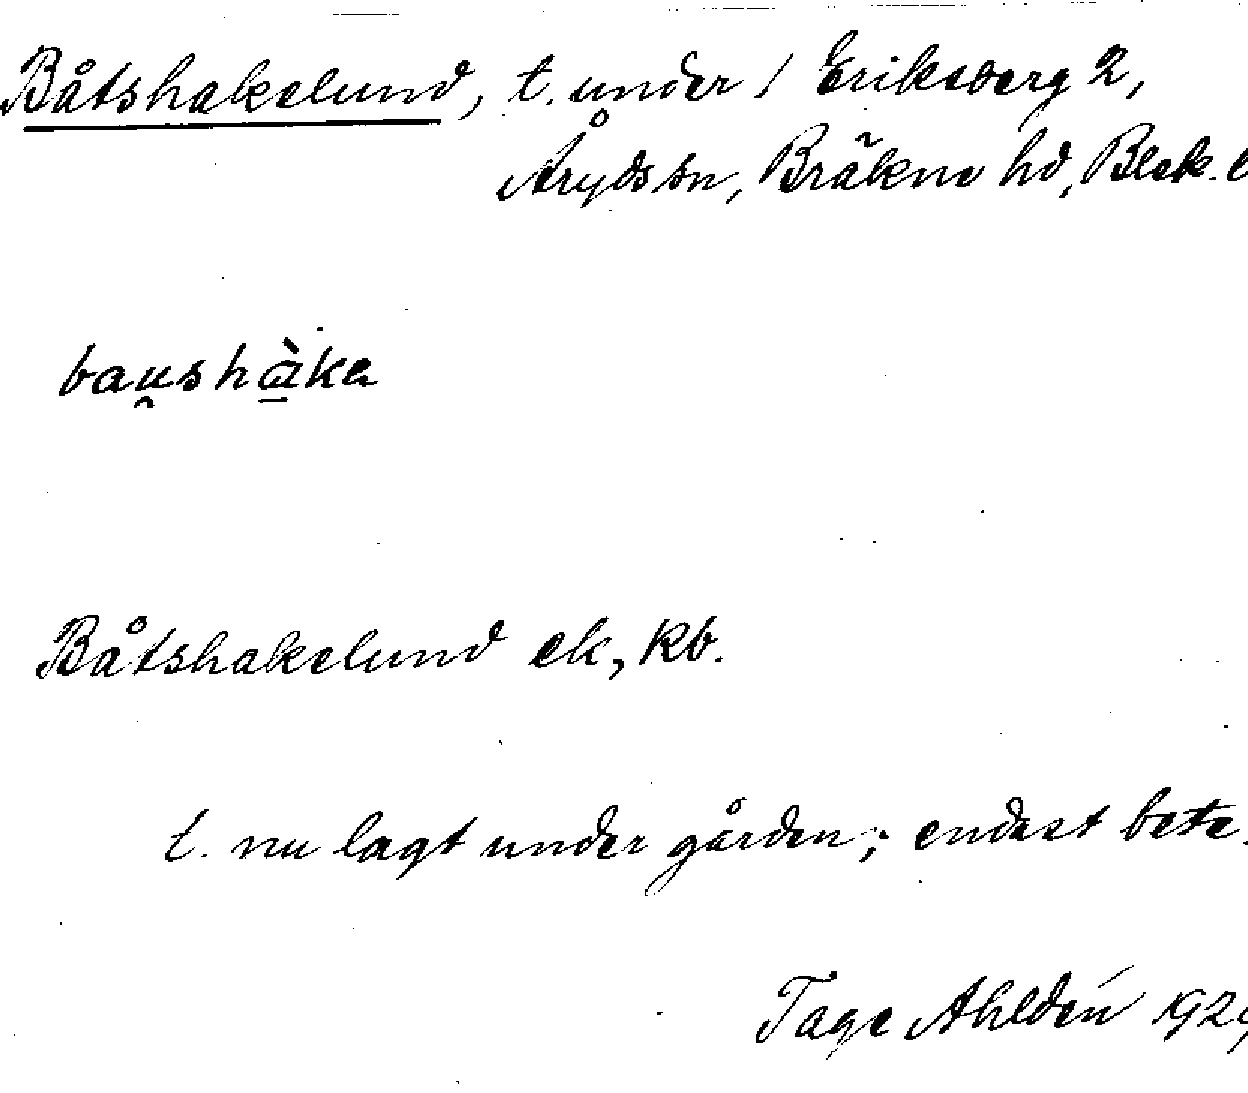 Båtshakelund, t. under / Eriksberg 2,
Åryds sn, Bräkne hd, Blek. l
bau̯shà̱ka
Båtshakelund ek, kb.
t. nu lagt under gården; endast bete.
Tage Ahldén 1929